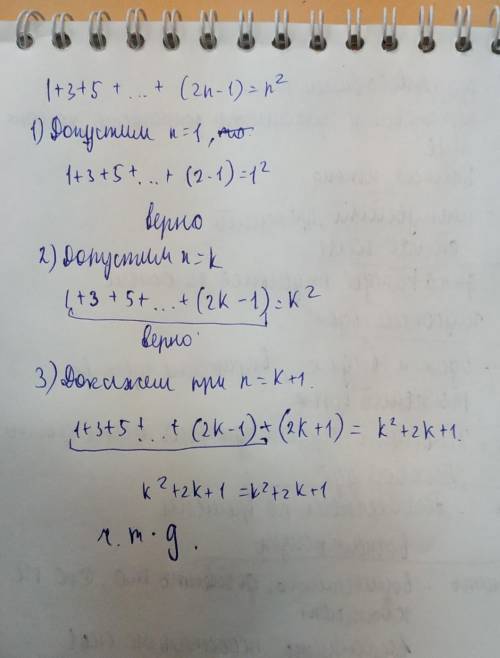 1+3+5 + ... + (2n-1) = n²
1) Допустим n=1,
1+3+5+...+ (2-1) = 1²
верно
2) Допустим n=k
1+3+5+...+(2k-1) = k²
верно
3) Докажем при n=k+1.
1+3+5+...+(2k-1)+(2k+1) = k²+2k+1.
k²+2k+1 = k²+2k+1
ч.т.д.